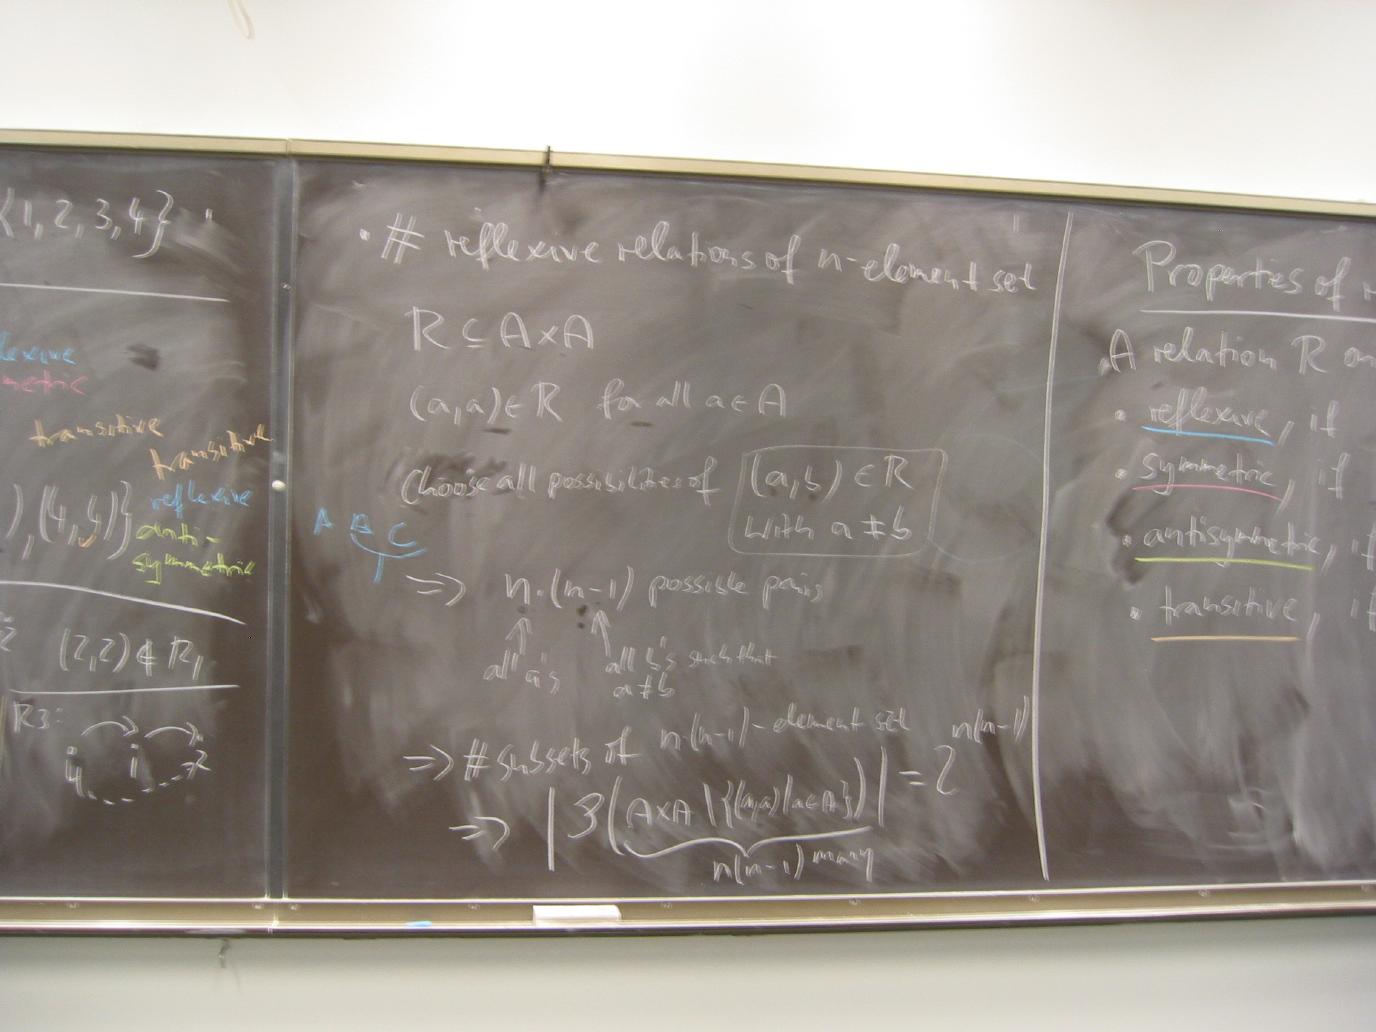 {1,2,3,4}
flexive
metric
transitive
transitive
), (4,4)} reflexive
anti-
symmetric
(2,2) ∉ R₁
R3:
4 i 2
• # reflexive relations of n-element set
R ⊆ A×A
(a,a) ∈ R for all a ∈ A
Choose all possibilities of (a,b) ∈ R
with a ≠ b
A B C
⇒ n·(n-1) possible pairs
all a's
all b's such that
a ≠ b
⇒ # subsets of n(n-1)-element set
⇒ |P(A×A \ {(a,a) | a∈A})| = 2^n(n-1)
n(n-1) many
Properties of r
A relation R on
• reflexive, if
• symmetric, if
• antisymmetric, if
• transitive, if